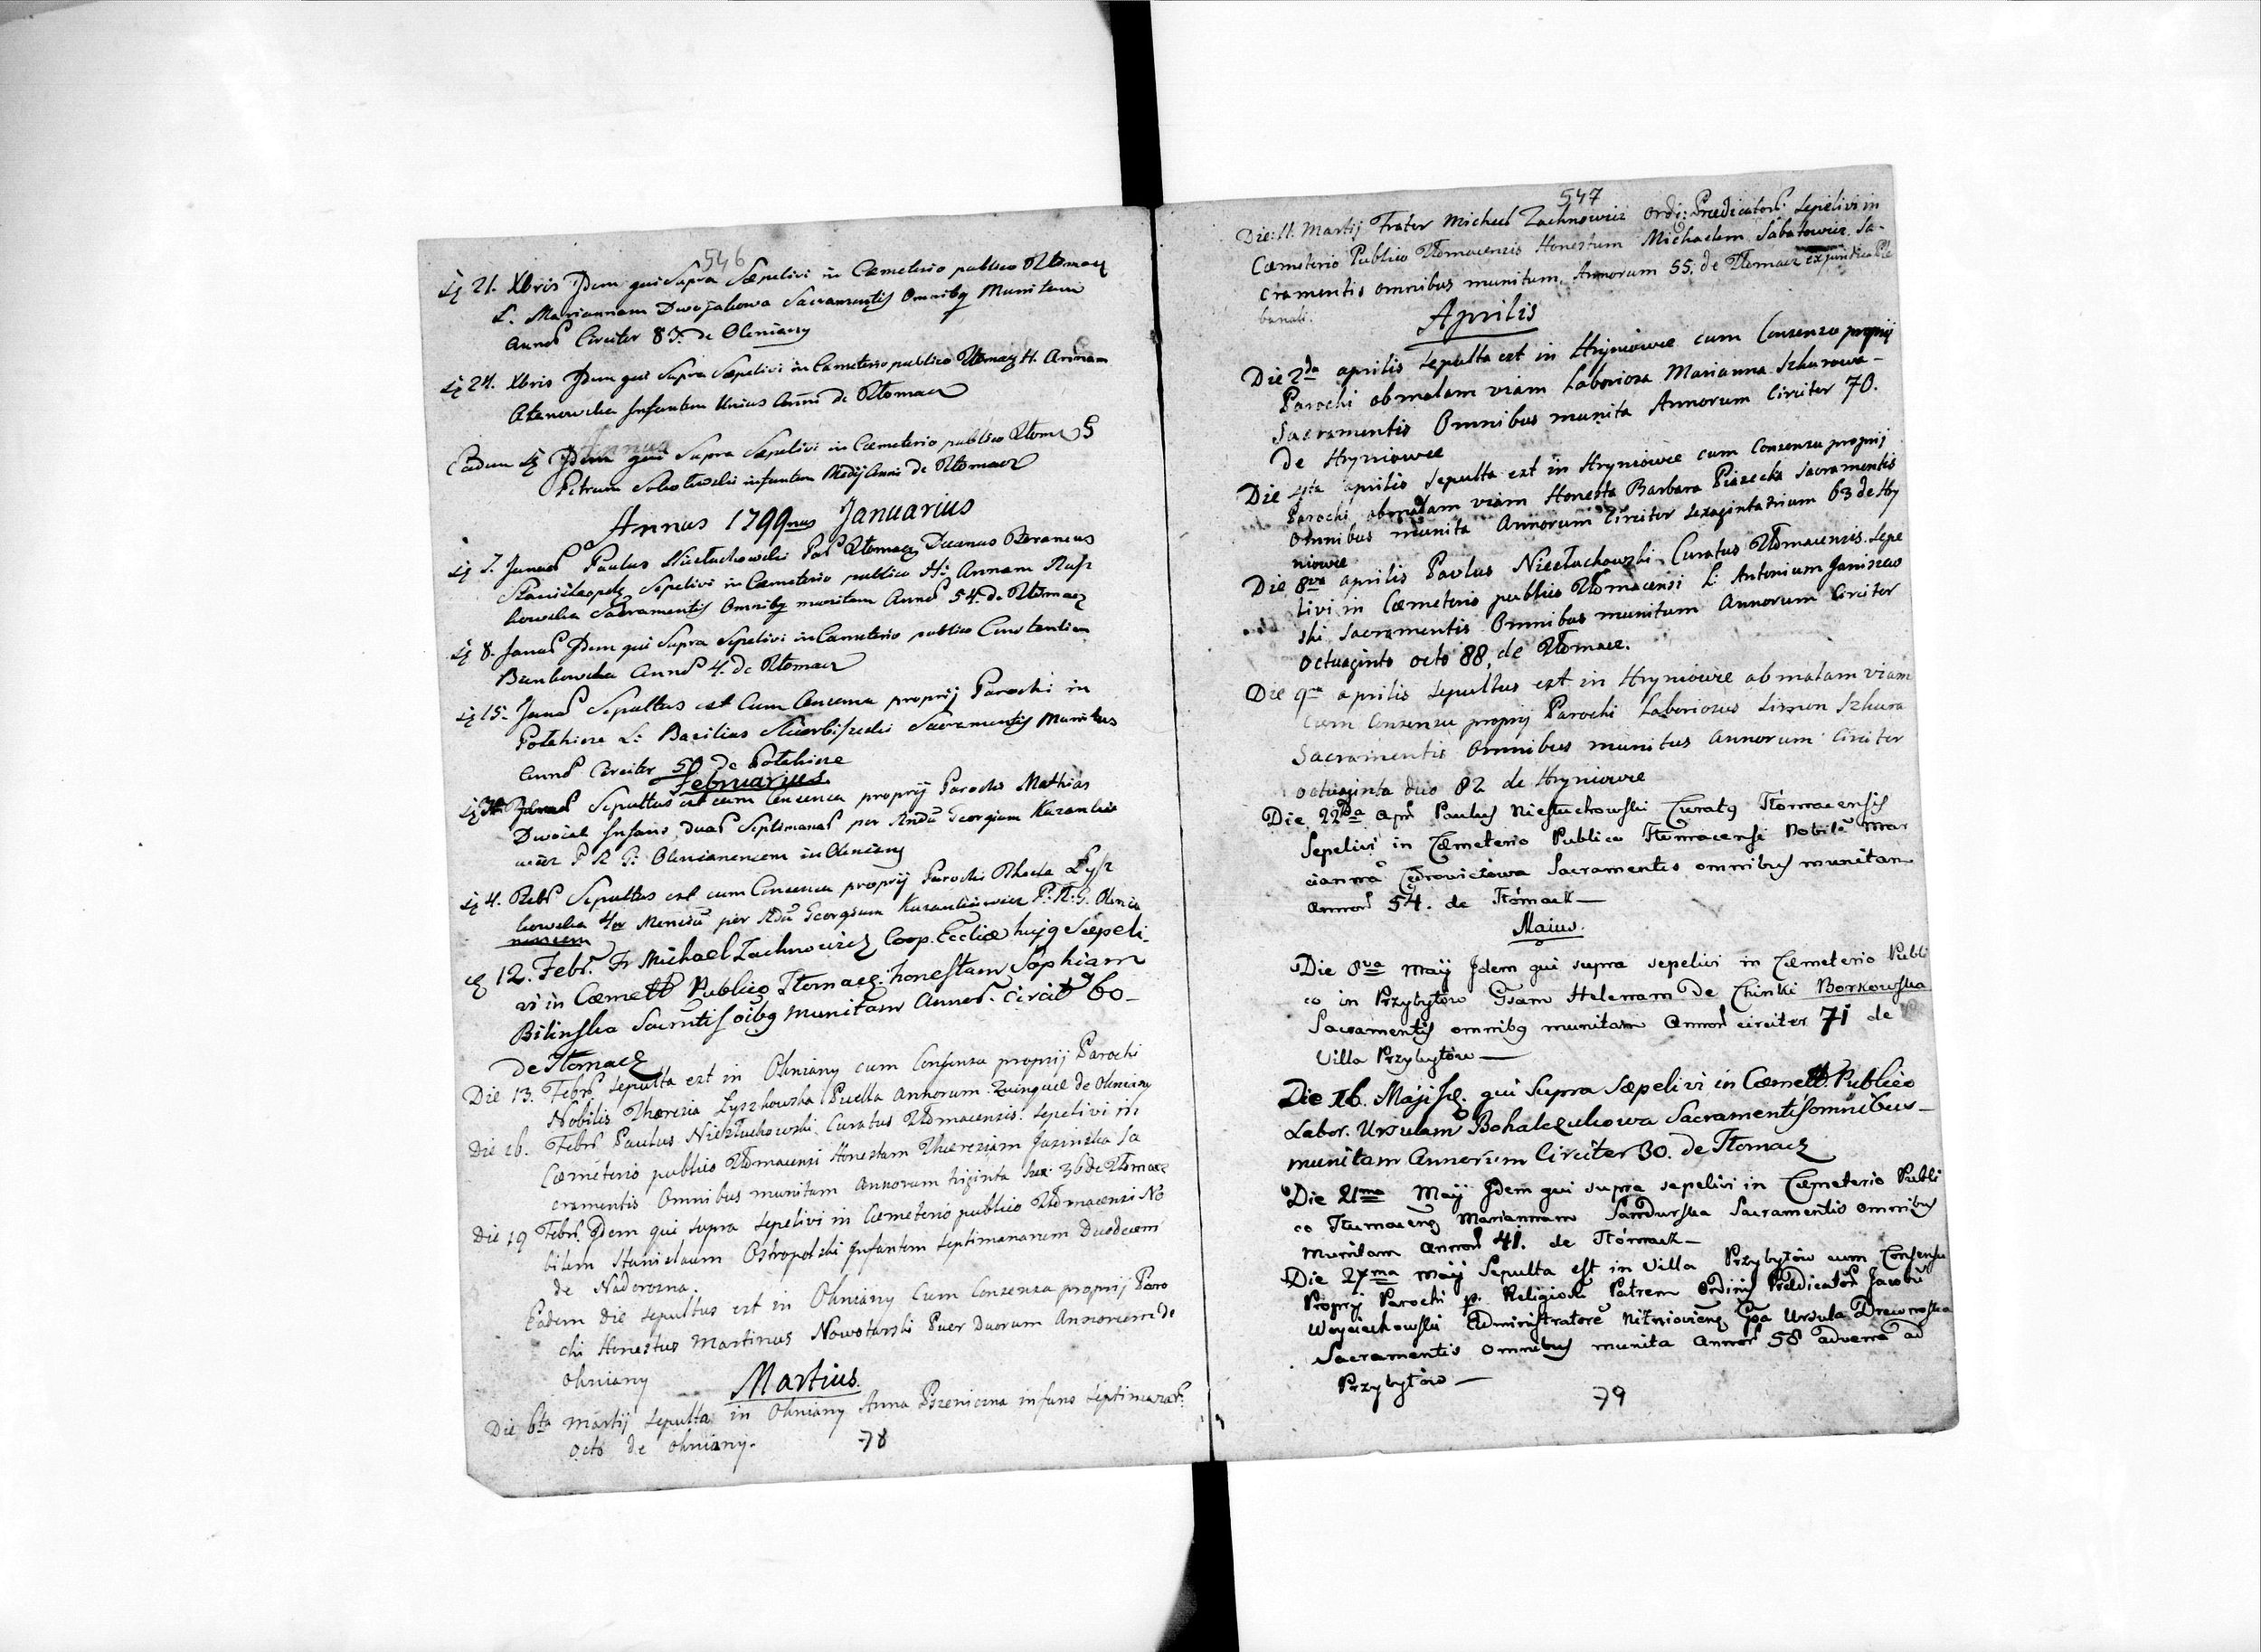 546
21. Xbris Idem qui Supra Sæpelivi in Cæmeterio publico Tłomacz
L. Mariannam Dwojakowa Sacramentis Omnibq Munitam
Annor Circiter 83. de Oleniany
24. Xbris Idem qui Supra Sæpelivi in Cæmeterio publico Tłomacz H. Annam
Infantem Unius Anni de Tłomacz
Eadem Idem qui Supra Sæpelivi in Cæmeterio publico Tłom
Petrum infantem Medij Anni de Tłomacz
Annus 1799nus Januarius
Paulus Nietłuchowski Tłomacz Decanus
Sepelivi in Cæmeterio publico H: Annam
Sacramentis Omnibq munitam Annor 54. de Tłomacz
8. Janua Idem qui Supra Sepelivi in Cæmeterio publico Constantiam
Annor 4. de Tłomacz
15. Janua Sepultus est Cum Consensu proprij Parochi in
L: Basilius Sacramentis Munitus
Annor Circiter 50 de
Februarius
Sepultus est cum Consensu proprij Parochi Mathias
Infans duar Septimanar per Georgium
in Oleniany
4. Febr Sepultus est cum Consensu proprij Parochi Thecla Lysz
kowska 4or Mensiu per Georgium P. R. G. Olenia
nensem
12. Febr. Fr Michael Zachnowicz Coop. Eccliæ hujq Sæpeli-
vi in Cæmett Publico Tłomacz. honestam Sophiam
Bilinska Sacrntis oibq munitam Annor. circit 60-
de Tłomacz
Die 13. Febr sepulta est in Olniany cum Consensu proprij Parochi
Nobilis Theresia Lyszkowska Puella Annorum Quinque de Olniany
Die 16. Febr Paulus Niezłuchowski Curatus Tłomacensis Sepelivi in
Cæmeterio publico Tłomacensi Honestam Theresiam Jasinska Sa
cramentis Omnibus munitam Annorum triginta sex 36 de Tłomacz
Die 19 Febr. Idem qui supra sepelivi in Cæmeterio publico Tłomacensi No
bilem Stanislaum Ostropolski Infantem septimanarum Duodecim
de Nadorozna.
Eadem Die sepultus est in Olniany Cum Consensu proprij Paro
chi Honestus Martinus Nowotarski Puer Duorum Annorum de
Olniany
Martius.
Die 6ta Martij sepulta in Olniany Anna Pszeniczna infans septimanar
octo de Olniany.
78
547
Die: 11. Martij Frater Michael Zachnowicz Ordi: Prædicator: sepelivi in
Cæmeterio Publico Tłomacensis Honestum Michaelem Sabatowicz Sa-
cramentis omnibus munitum, Annorum 55. de Tłomacz
Aprilis
Die 2da aprilis sepulta est in Hryniowce cum Consensu proprij
Parochi ob malam viam Laboriosa Marianna Szkurowa-
Sacramentis Omnibus munita Annorum Circiter 70.
de Hryniowce
Die 4ta aprilis sepulta est in Hryniowce cum Consensu proprij
Parochi ob malam viam Honesta Barbara Piasecka Sacramentis
omnibus munita Annorum Circiter sexaginta trium 63 de Hry
niowce
Die 8va aprilis Paulus Niezłuchowski Curatus Tłomacensis. Sepe
livi in Cæmeterio publico Tłomacensi L: Antonium Janiszew
ski Sacramentis Omnibus munitum Annorum Circiter
octuaginto octo 88, de Tłomacz.
Die 9na aprilis sepultus est in Hryniowce ob malam viam
cum Consensu proprij Parochi Laboriosus Simon Szkura
Sacramentis Omnibus munitus Annorum Circiter
octuaginta duo 82 de Hryniowce
Die 22da Apr Paulus Niesłuchowski Curatq Tłomacensis
Sepelivi in Cæmeterio Publico Tłumacensi Nobile Mar
iannã Sacramentis omnibus munitam
Annor 54. de Tłómacz-
Maius.
Die 8va Maij Idem qui supra sepelivi in Cæmeterio Publi
co in Przybyłow Gsam Helenam de Chinki Borkowska
Sacramentis omnibq munitam Annor circiter 71 de
Villa Przybyłów-
Die 16. Maji qui Supra Sæpelivi in Cæmett. Publico
Labor. Ursulam Bohalczukowa Sacramentis omnibus-
munitam Annorum Circiter 30. de Tłomacz
Die 21ma Maij Idem qui supra sepelivi in Cæmeterio Publi
co Mariannam Sandurska Sacramentis omnibus
Munitam Annor 41. de Tłómacz-
Die 27ma Maij Sepulta est in Villa Przybyłów cum Consensu
Proprij Parochi p. Religiosu Patrem Ordinis Prædicator Jacobu
Woyciechowski Administratore Gsa Ursula Drewnoska
Sacramentis omnibus munita Annor 58 advena ad
Przybyłów-
79